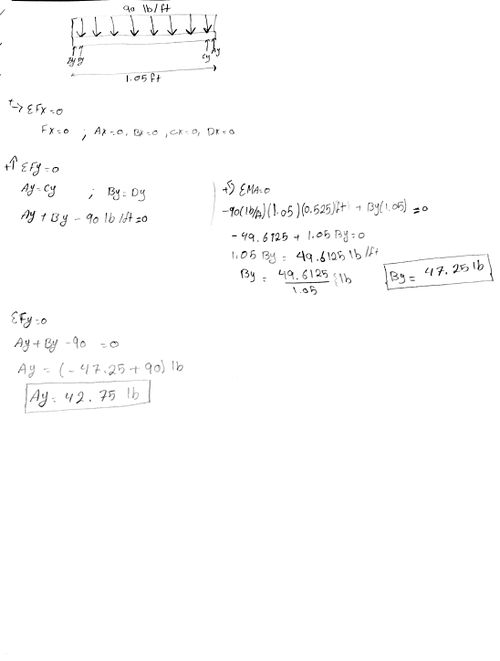 90 lb/ft
By Cy Ay
1.05 ft
ΣFx=0
Fx=0 ; Ax=0, Bx=0, Cx=0, Dx=0
+↑ ΣFy=0
Ay=Cy ; By=Dy
Ay + By - 90 lb/ft=0
+↺ ΣMA=0
-90(lb/ft)(1.05)(0.525)ft + By(1.05) =0
-49.6125 + 1.05 By=0
1.05 By = 49.6125 lb/ft
By = 49.6125/1.05 lb
By = 47.25 lb
ΣFy=0
Ay + By - 90 = 0
Ay = (-47.25 + 90) lb
Ay = 42.75 lb